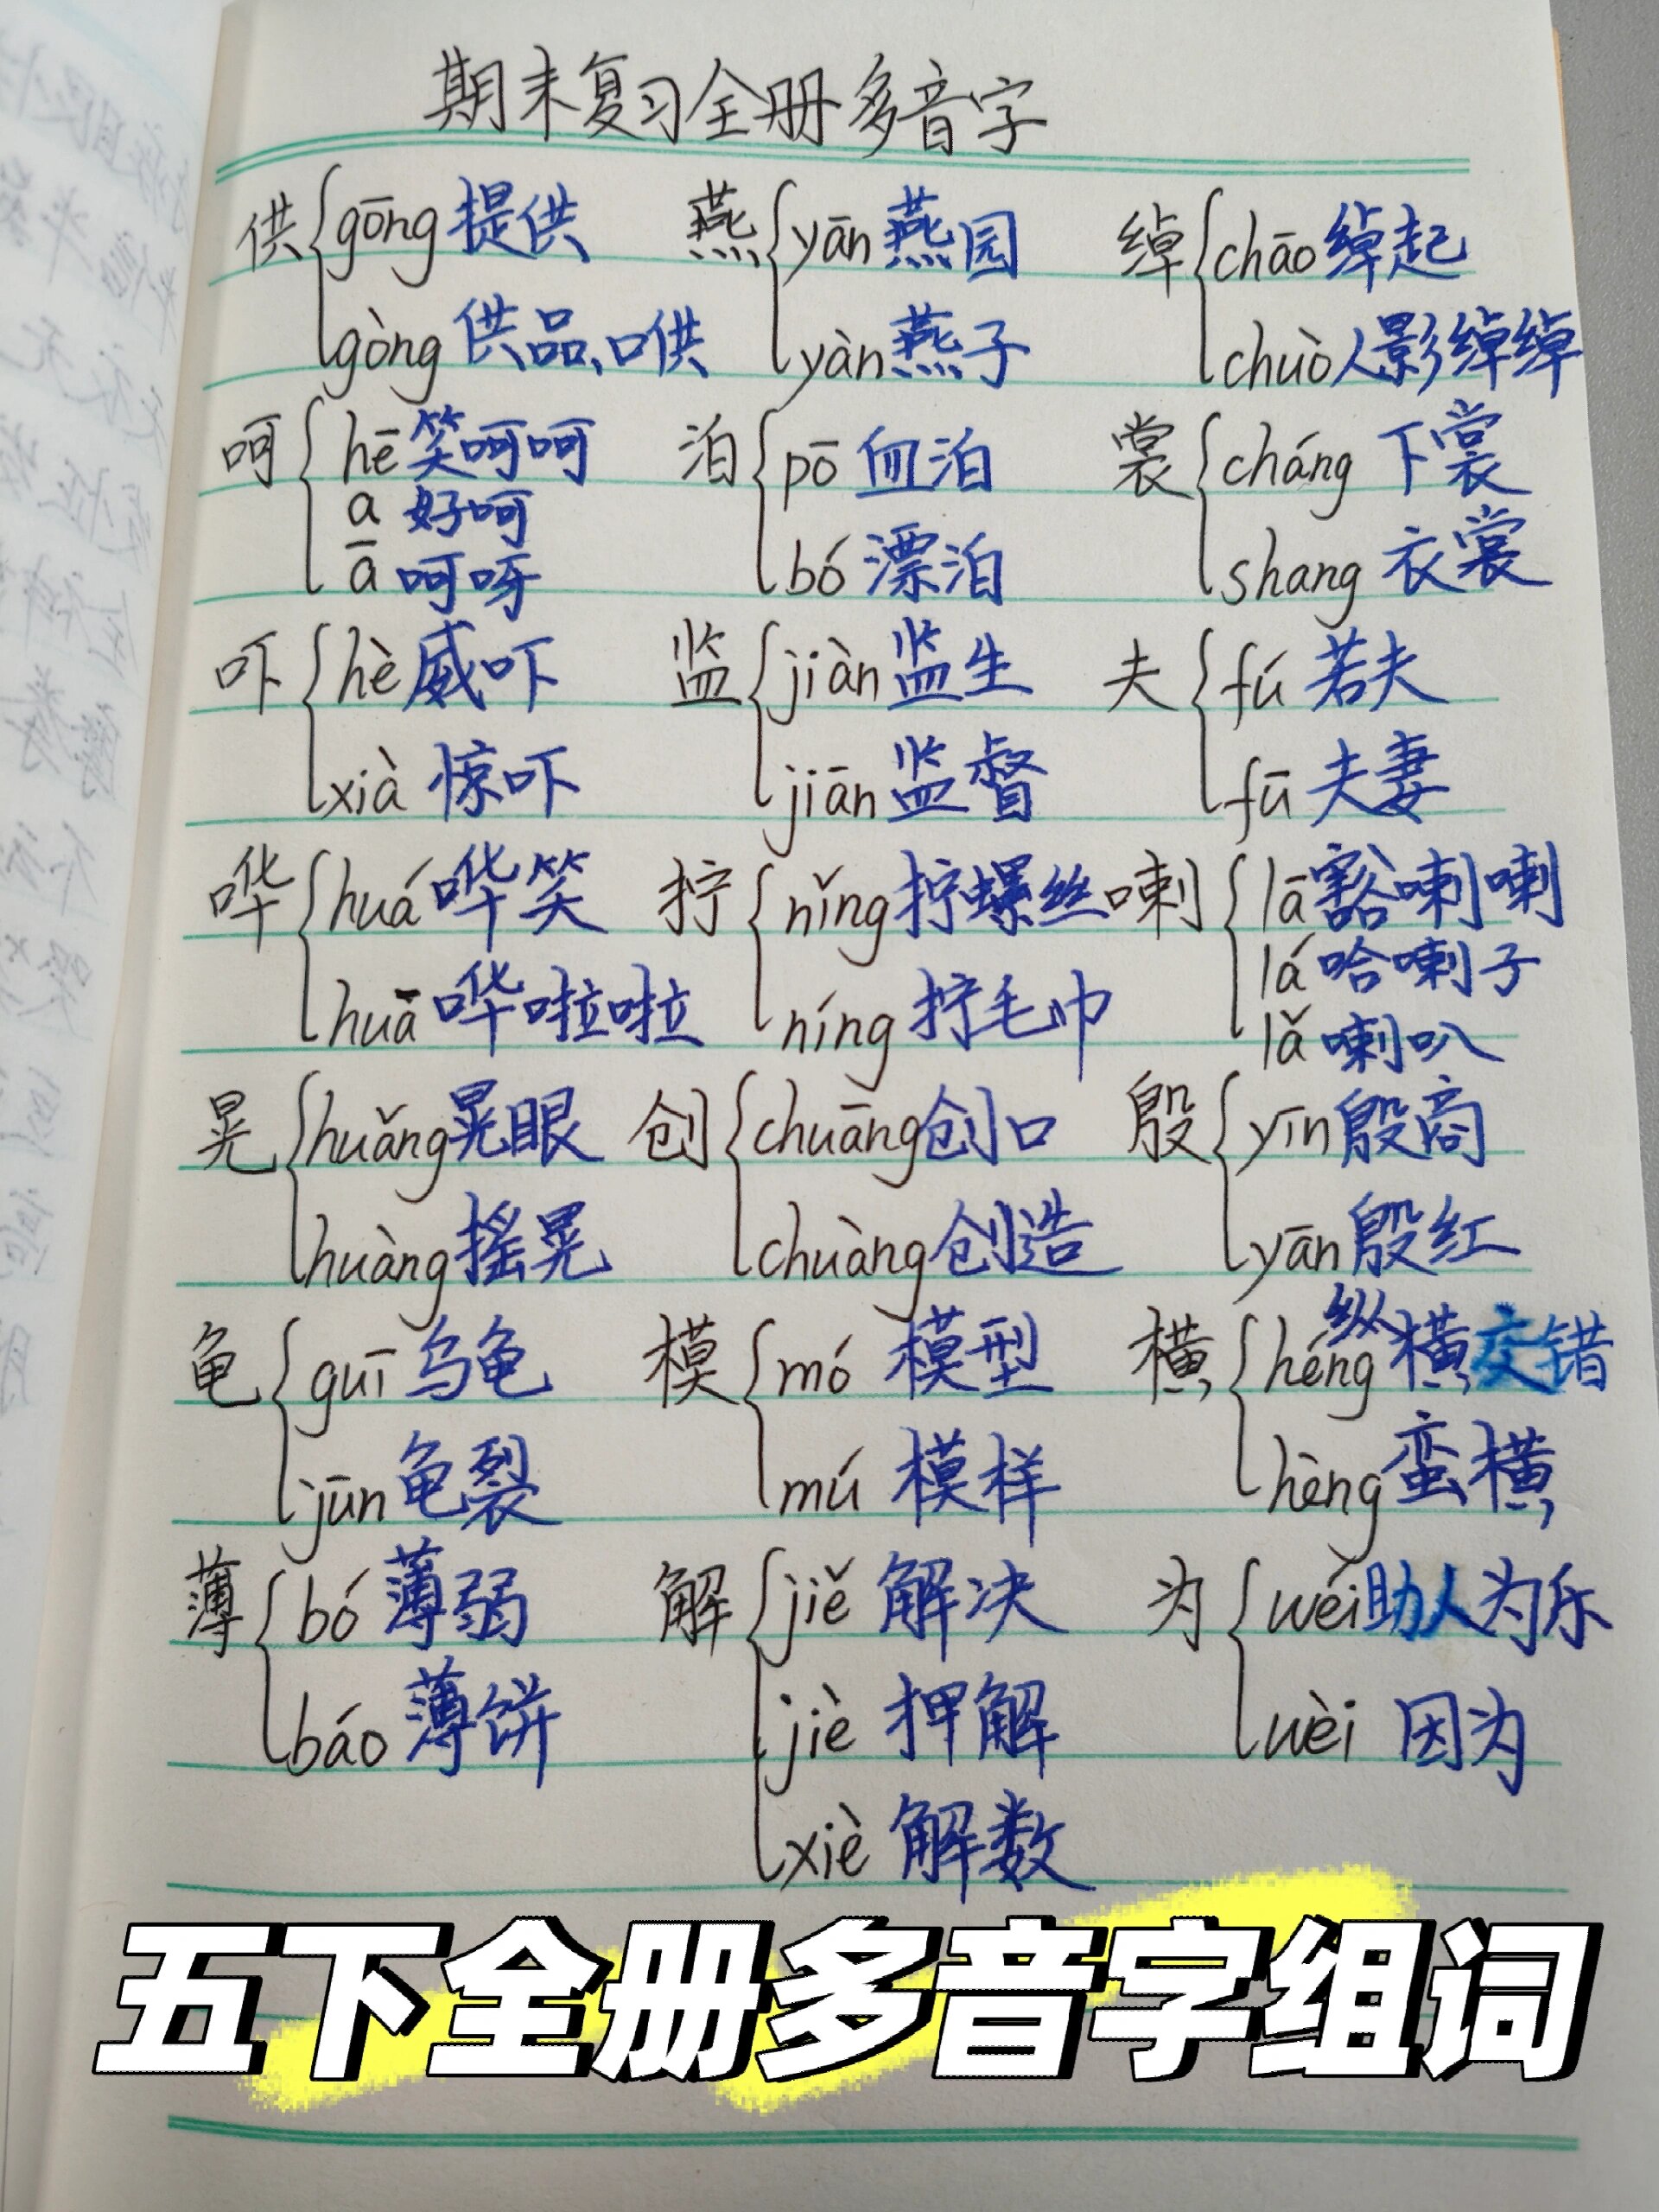 期末复习全册多音字
供 gōng 提供 燕 yān 燕园 绰 chāo 绰起
gòng 供品、口供 yàn 燕子 chuò 人影绰绰
呵 hē 笑呵呵 泊 pō 血泊 裳 cháng 下裳
a 好呵
ā 呵呀 bó 漂泊 shang 衣裳
吓 hè 威吓 监 jiàn 监生 夫 fú 若夫
xià 惊吓 jiān 监督 fū 夫妻
哗 huá 哗笑 拧 nǐng 拧螺丝 喇 lā 豁喇喇
lá 哈喇子
huā 哗啦啦 níng 拧毛巾 lǎ 喇叭
晃 huǎng 晃眼 创 chuāng 创口 殷 yīn 殷商
huàng 摇晃 chuàng 创造 yān 殷红
龟 guī 乌龟 模 mó 模型 横 héng 纵横交错
jūn 龟裂 mú 模样 hèng 蛮横
薄 bó 薄弱 解 jiě 解决 为 wéi 助人为乐
báo 薄饼 jiè 押解 wèi 因为
xiè 解数
五下全册多音字组词